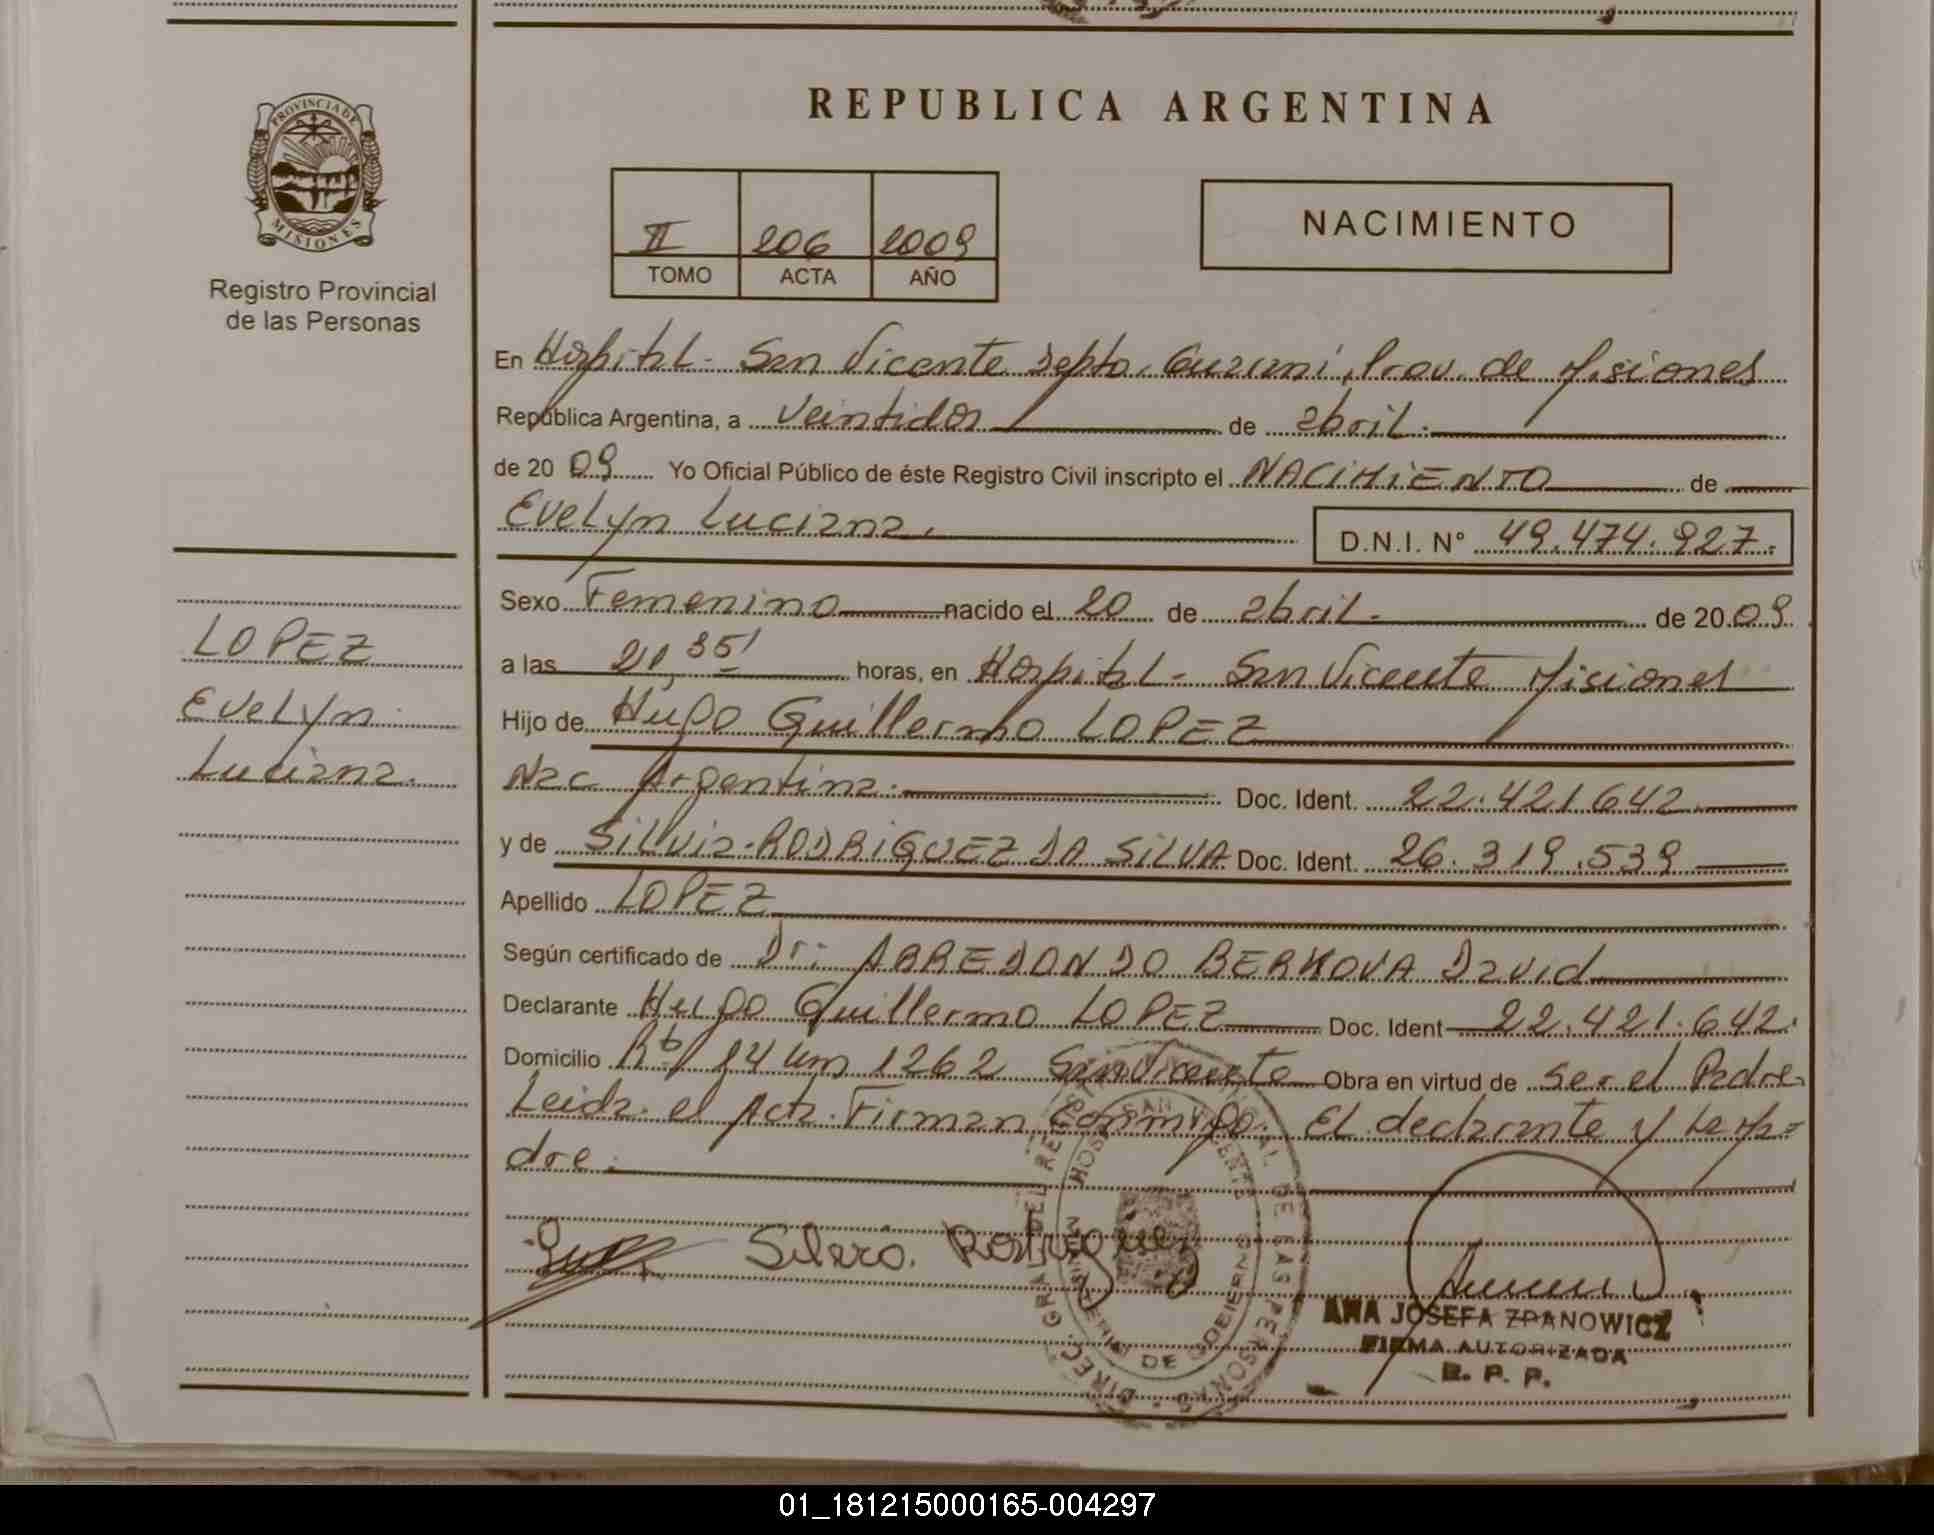 REPUBLICA ARGENTINA
PROVINCIA DE
MISIONES
Registro Provincial
de las Personas
II 206 2009
TOMO ACTA AÑO
NACIMIENTO
En Hospital - San Vicente Depto. Guarani, Prov. de Misiones
República Argentina, a veintidos de abril.
de 20 09 Yo Oficial Público de éste Registro Civil inscripto el NACIMIENTO de
Evelyn Luciana. D.N.I. N° 49.474.927.
Sexo Femenino nacido el 20 de abril. de 20 09.
LOPEZ
Evelyn
Luciana.
a las 21,35' horas, en Hospital - San Vicente Misiones
Hijo de Hugo Guillermo LOPEZ
Nac Argentina. Doc. Ident. 22.421642.
y de Silvia. RODRIGUEZ DA SILVA Doc. Ident. 26.319.539
Apellido LOPEZ
Según certificado de Dr: ARREDONDO BERKOVA David
Declarante Hugo Guillermo LOPEZ Doc. Ident 22.421.642.
Domicilio Rta 14 km 1262 San Vicente Obra en virtud de ser el Padre.
Leida el Acta. Firman Conmigo. El declarante y la Ma=
dre.
Silvia. Rodriguez
DIREC. GRAL. DEL REGISTRO PROVINCIAL DE LAS PERSONAS
HOSP. SAN VICENTE
MINISTERIO DE GOBIERNO
ANA JOSEFA ZDANOWICZ
FIRMA AUTORIZADA
R. P. P.
01_181215000165-004297